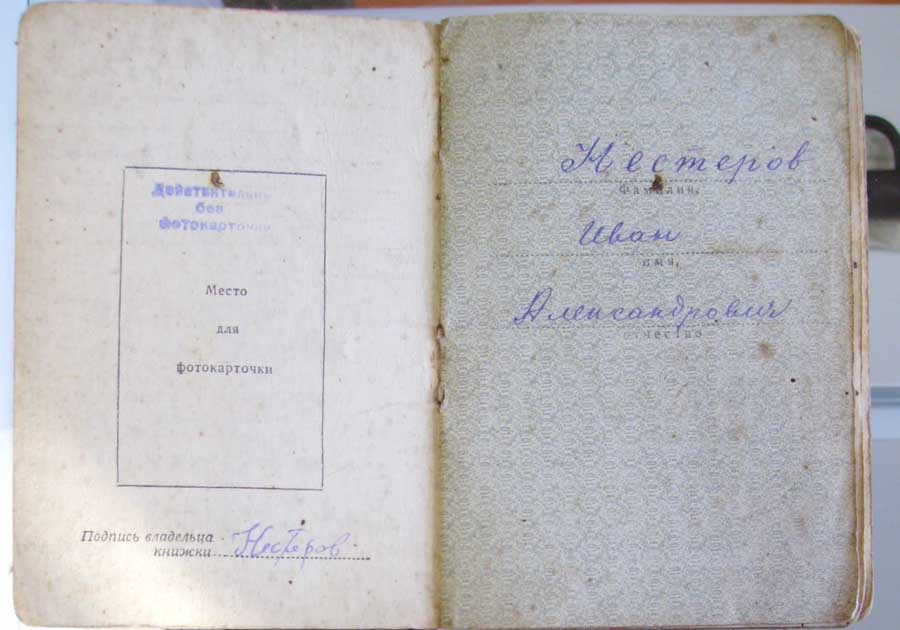 Действительно
без
фотокарточки
Место
для
фотокарточки
Подпись владельца
книжки Нестеров
Нестеров
Фамилия,
Иван
имя,
Александрович
отчество